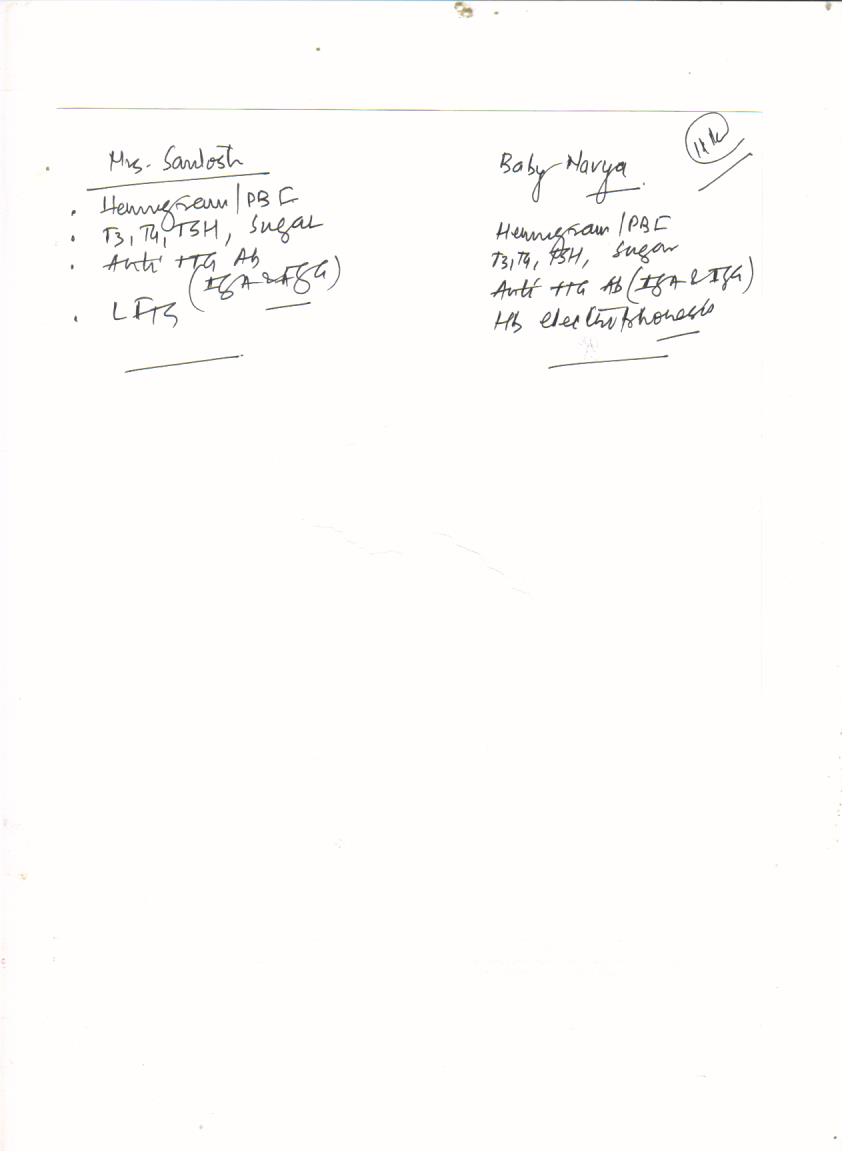 Mrs. Santosh
Hemogram/PBF
T3, T4, TSH, Sugar
Anti tTG Ab
(IgA & IgG)
LFTs
Baby Navya
Hemogram/PBF
T3, T4, TSH, Sugar
Anti tTG Ab (IgA & IgG)
Hb electrophoresis